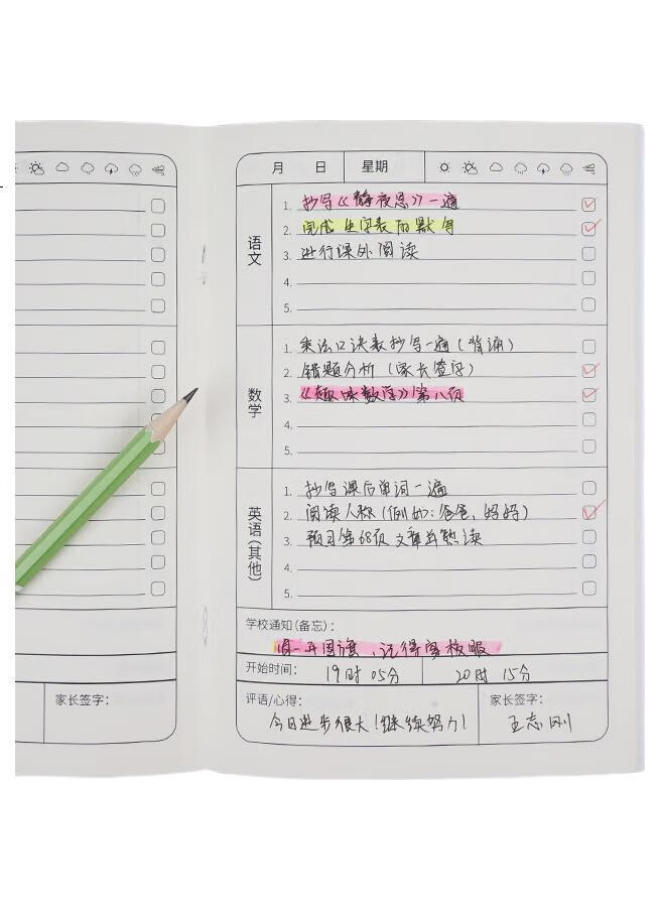 月 日 星期
语文
1. 抄写《静夜思》一遍
2. 完成生字表的默写
3. 进行课外阅读
4.
5.
数学
1. 乘法口诀表抄写一遍(背诵)
2. 错题分析(家长签字)
3. 《趣味数学》第八页
4.
5.
英语(其他)
1. 抄写课后单词一遍
2. 阅读人称(例如:爸爸、妈妈)
3. 预习第68页文章并熟读
4.
5.
学校通知(备忘):
周一升国旗,记得穿校服
开始时间: 19时05分 20时15分
评语/心得:
今日进步很大!继续努力!
家长签字:
王志刚
家长签字: